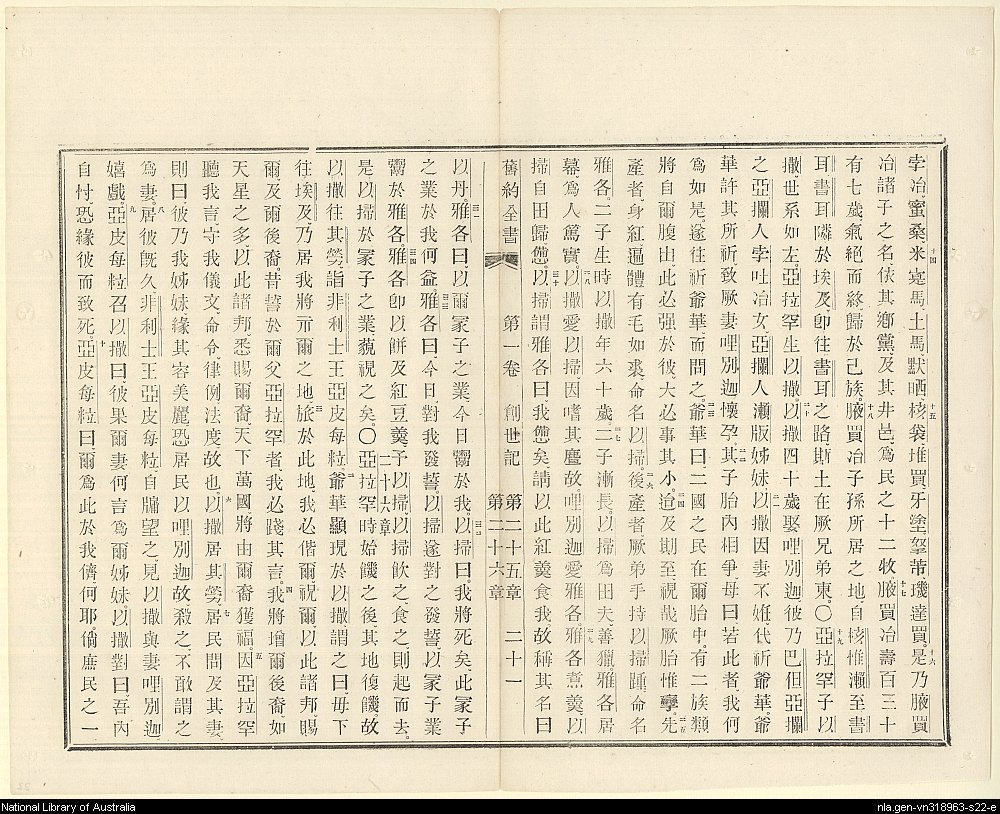 孛冶蜜桑米寔馬土馬默晒核袋堆買牙塗孥芾璣達買是乃腋買
冶諸子之名依其鄕黨及其井邑爲民之十二牧腋買冶壽百三十
有七歲氣絕而終歸於己族腋買冶子孫所居之地自核惟瀨至書
耳書耳隣於埃及卽往書耳之路斯土在厥兄弟東〇亞拉罕子以
撒世系如左亞拉罕生以撒以撒四十歲娶哩別迦彼乃巴但亞攔
之亞攔人孛吐冶女亞攔人瀨版姊妹以撒因妻不姙代祈爺華爺
華許其所祈致厥妻哩別迦懷孕其子胎內相爭母曰若此者我何
爲如是遂往祈爺華而問之爺華曰二國之民在爾胎中有二族類
將自爾腹出此必强於彼大必事其小迨及期至視哉厥胎惟孿先
產者身紅遍體有毛如裘命名以掃後產者厥弟手持以掃踵命名
雅各二子生時以撒年六十歲二子漸長以掃爲田夫善獵雅各居
幕爲人篤實以撒愛以掃因嗜其麕故哩別迦愛雅各雅各煑羹以
掃自田歸憊以掃謂雅各曰我憊矣請以此紅羹食我故稱其名曰
舊約全書 第一卷 創世記 第二十五章 第二十六章 二十一
以丹雅各曰以爾冢子之業今日鬻於我以掃曰我將死矣此冢子
之業於我何益雅各曰今日對我發誓以掃遂對之發誓以冢子業
鬻於雅各雅各卽以餠及紅豆羹予以掃以掃飲之食之則起而去
是以掃於冢子之業藐視之矣〇二十六章亞拉罕時始饑之後其地復饑故
以撒往其嘮詣非利士王亞皮每粒爺華顯現於以撒謂之曰毋下
往埃及乃居我將示爾之地旅於此地我必偕爾祝爾以此諸邦賜
爾及爾後裔昔誓於爾父亞拉罕者我必踐其言我將增爾後裔如
天星之多以此諸邦悉賜爾裔天下萬國將由爾裔獲福因亞拉罕
聽我言守我儀文命令律例法度故也以撒居其嘮居民問及其妻
則曰彼乃我姊妹緣其容美麗恐居民以哩別迦故殺之不敢謂之
爲妻居彼旣久非利士王亞皮每粒自牖望之見以撒與妻哩別迦
嬉戲亞皮每粒召以撒曰彼果爾妻何言爲爾姊妹以撒對曰吾內
自忖恐緣彼而致死亞皮每粒曰爾爲此於我儕何耶倘庶民之一
National Library of Australia
nla.gen-vn318963-s22-e